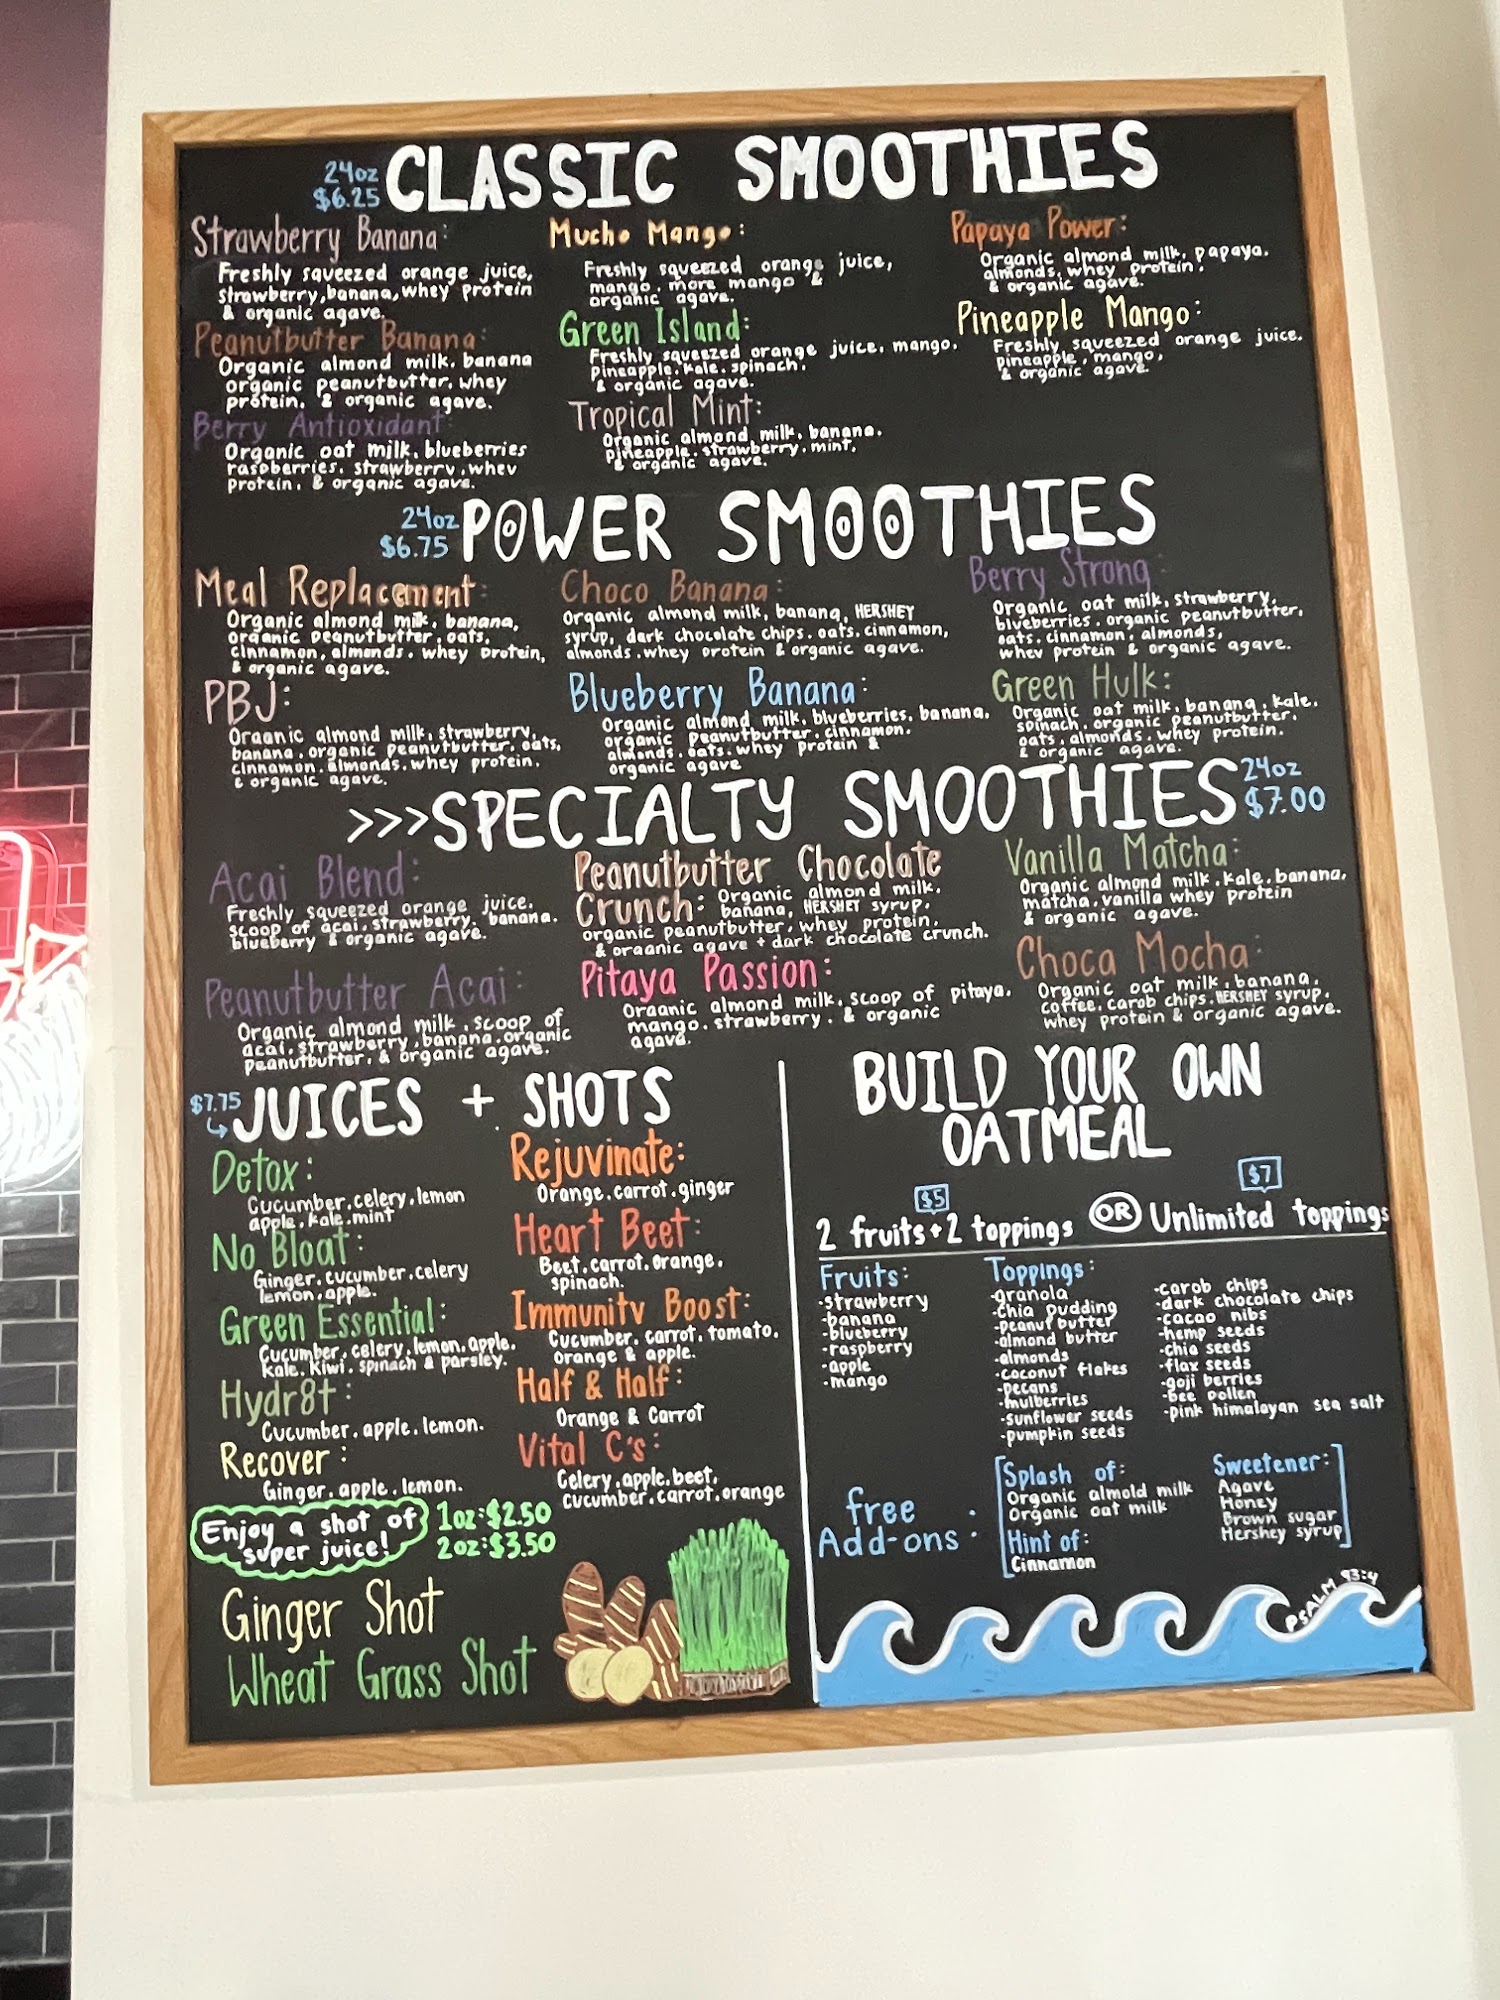 24oz
$6.25
CLASSIC SMOOTHIES
Strawberry Banana:
Freshly squeezed orange juice,
strawberry, banana, whey protein
& organic agave.
Peanutbutter Banana:
Organic almond milk, banana
organic peanutbutter, whey
protein, & organic agave.
Berry Antioxidant:
Organic oat milk, blueberries
raspberries, strawberry, whey
protein, & organic agave.
Mucho Mango:
Freshly squeezed orange juice,
mango, more mango &
organic agave.
Green Island:
Freshly squeezed orange juice, mango,
pineapple, kale, spinach,
& organic agave.
Tropical Mint:
Organic almond milk, banana,
pineapple, strawberry, mint,
& organic agave.
Papaya Power:
Organic almond milk, papaya,
almonds, whey protein,
& organic agave.
Pineapple Mango:
Freshly squeezed orange juice,
pineapple, mango,
& organic agave.
24oz
$6.75
POWER SMOOTHIES
Meal Replacement:
Organic almond milk, banana,
organic peanutbutter, oats,
cinnamon, almonds, whey protein,
& organic agave.
PBJ:
Organic almond milk, strawberry,
banana, organic peanutbutter, oats,
cinnamon, almonds, whey protein,
& organic agave.
Choco Banana:
Organic almond milk, banana, HERSHEY
syrup, dark chocolate chips, oats, cinnamon,
almonds, whey protein & organic agave.
Blueberry Banana:
Organic almond milk, blueberries, banana,
organic peanutbutter, cinnamon,
almonds, oats, whey protein &
organic agave
Berry Strong
Organic oat milk, strawberry,
blueberries, organic peanutbutter,
oats, cinnamon, almonds,
whey protein & organic agave.
Green Hulk:
Organic oat milk, banana, kale,
spinach, organic peanutbutter,
oats, almonds, whey protein,
& organic agave.
>>>SPECIALTY SMOOTHIES
24oz
$7.00
Acai Blend:
Freshly squeezed orange juice,
scoop of acai, strawberry, banana,
blueberry & organic agave.
Peanutbutter Acai:
Organic almond milk, scoop of
acai, strawberry, banana, organic
peanutbutter, & organic agave.
Peanutbutter Chocolate
Crunch: Organic almond milk,
banana, HERSHEY syrup,
organic peanutbutter, whey protein,
& organic agave + dark chocolate crunch.
Pitaya Passion:
Organic almond milk, scoop of pitaya,
mango, strawberry, & organic
agave.
Vanilla Matcha:
Organic almond milk, kale, banana,
matcha, vanilla whey protein
& organic agave.
Choca Mocha:
Organic oat milk, banana,
coffee, carob chips, HERSHEY syrup,
whey protein & organic agave.
$7.75
JUICES + SHOTS
Detox:
Cucumber, celery, lemon
apple, kale, mint
No Bloat:
Ginger, cucumber, celery
lemon, apple.
Green Essential:
Cucumber, celery, lemon, apple,
kale, kiwi, spinach & parsley.
Hydr8t:
Cucumber, apple, lemon.
Recover:
Ginger, apple, lemon.
Rejuvinate:
Orange, carrot, ginger
Heart Beet:
Beet, carrot, orange,
spinach.
Immunity Boost:
Cucumber, carrot, tomato,
orange & apple.
Half & Half:
Orange & Carrot
Vital C's:
Celery, apple, beet,
cucumber, carrot, orange
Enjoy a shot of
super juice!
1oz: $2.50
2oz: $3.50
Ginger Shot
Wheat Grass Shot
BUILD YOUR OWN
OATMEAL
$5
2 fruits + 2 toppings
OR
$7
Unlimited toppings
Fruits:
-strawberry
-banana
-blueberry
-raspberry
-apple
-mango
Toppings:
-granola
-chia pudding
-peanut butter
-almond butter
-almonds
-coconut flakes
-pecans
-mulberries
-sunflower seeds
-pumpkin seeds
-carob chips
-dark chocolate chips
-cacao nibs
-hemp seeds
-chia seeds
-flax seeds
-goji berries
-bee pollen
-pink himalayan sea salt
free
Add-ons:
Splash of:
Organic almold milk
Organic oat milk
Hint of:
Cinnamon
Sweetener:
Agave
Honey
Brown sugar
Hershey syrup
PSALM 93:4